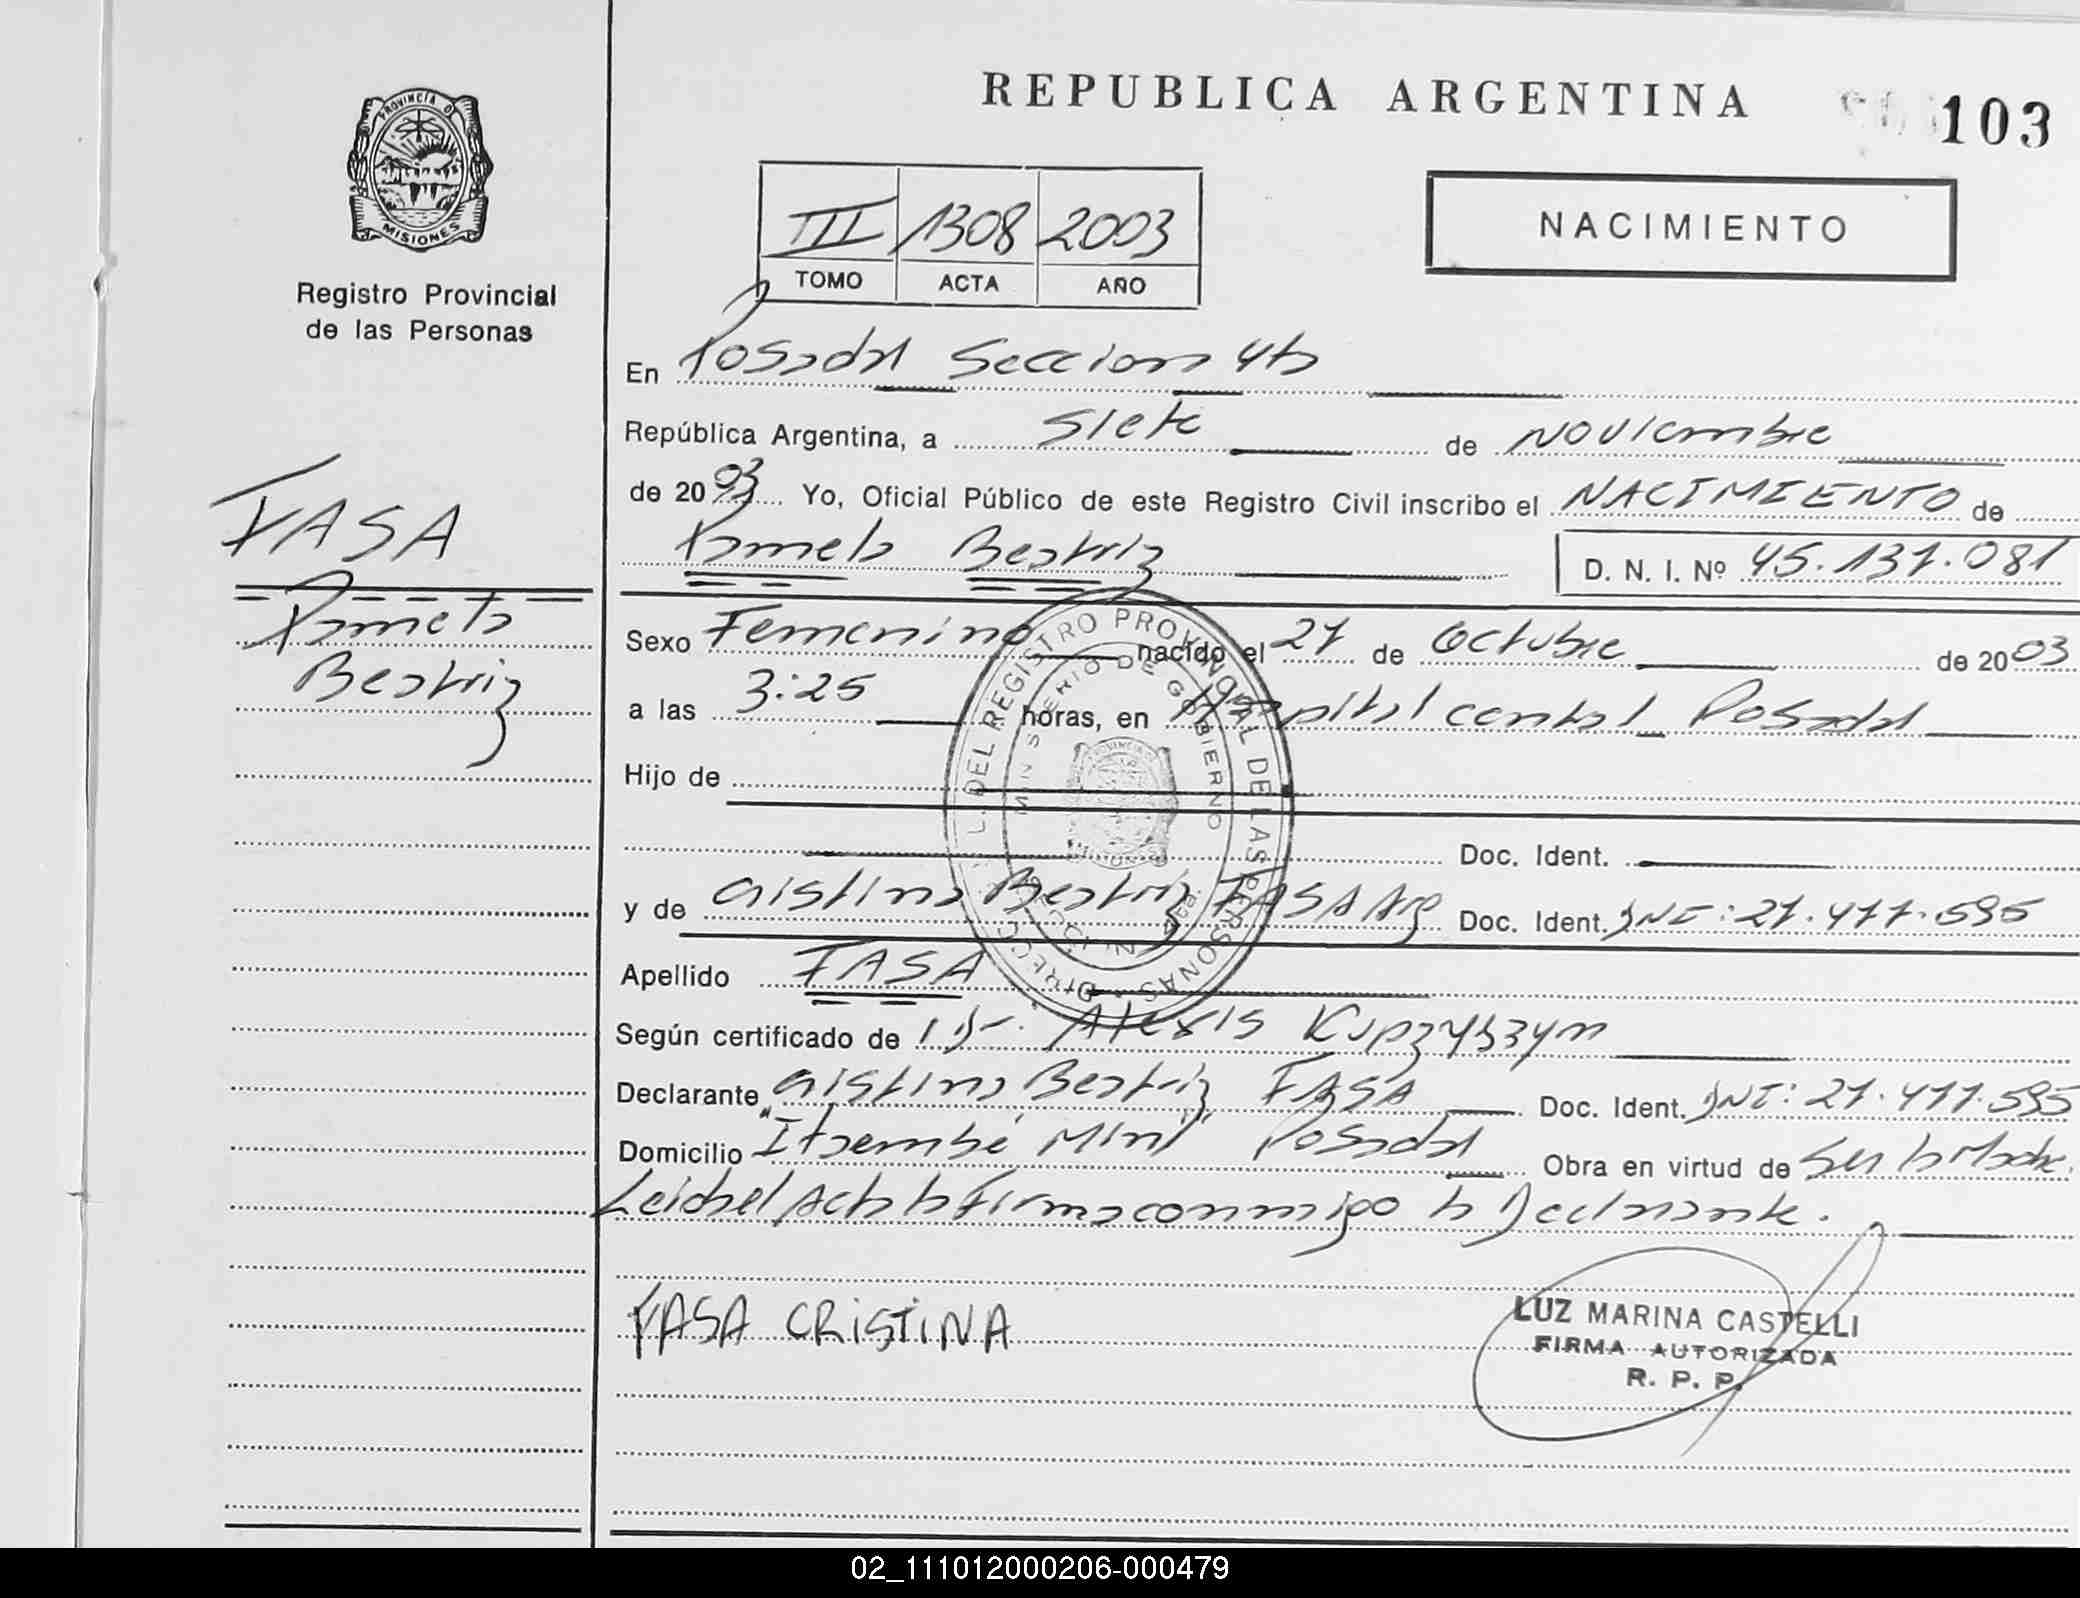 REPUBLICA ARGENTINA
103
PROVINCIA DE
MISIONES
Registro Provincial
de las Personas
III 1308 2003
TOMO ACTA AÑO
NACIMIENTO
En Posadas Seccion 4ta
República Argentina, a siete de Noviembre
de 2003 Yo, Oficial Público de este Registro Civil inscribo el NACIMIENTO de
Pamela Beatriz D. N. I. Nº 45.137.081
FASA
Pamela
Beatriz
Sexo Femenino nacido el 27 de Octubre de 2003
a las 3:25 horas, en Hospital central Posadas
Hijo de
Doc. Ident.
y de Cristina Beatriz FASA Arg Doc. Ident. DNI: 27.477.595
Apellido FASA
Según certificado de Dr. Alexis
Declarante Cristina Beatriz FASA Doc. Ident. DNI: 27.477.595
Domicilio "Itaembé Miní" Posadas Obra en virtud de Ser la Madre.
Leida el Acta la firma conmigo la Declarante.
FASA CRISTINA
LUZ MARINA CASTELLI
FIRMA AUTORIZADA
R. P. P.
DEL REGISTRO PROVINCIAL DE LAS PERSONAS
MINISTERIO DE GOBIERNO
02_111012000206-000479